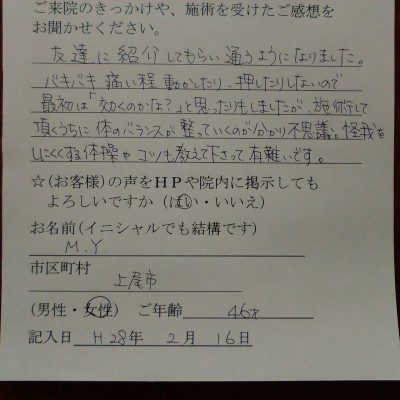 ご来院のきっかけや、施術を受けたご感想を
お聞かせください。
友達に紹介してもらい通うようになりました。
バキバキ痛い程動かしたり、押したりしないので
最初は「効くのかな?」と思ったりもしましたが、施術して
頂くうちに体のバランスが整っていくのが分かり不思議。怪我を
しにくくする体操やコツも教えて下さって有難いです。
☆(お客様)の声をHPや院内に掲示しても
よろしいですか(はい・いいえ)
お名前(イニシャルでも結構です)
M.Y.
市区町村
上尾市
(男性・女性) ご年齢 46才
記入日 H28年 2月 16日